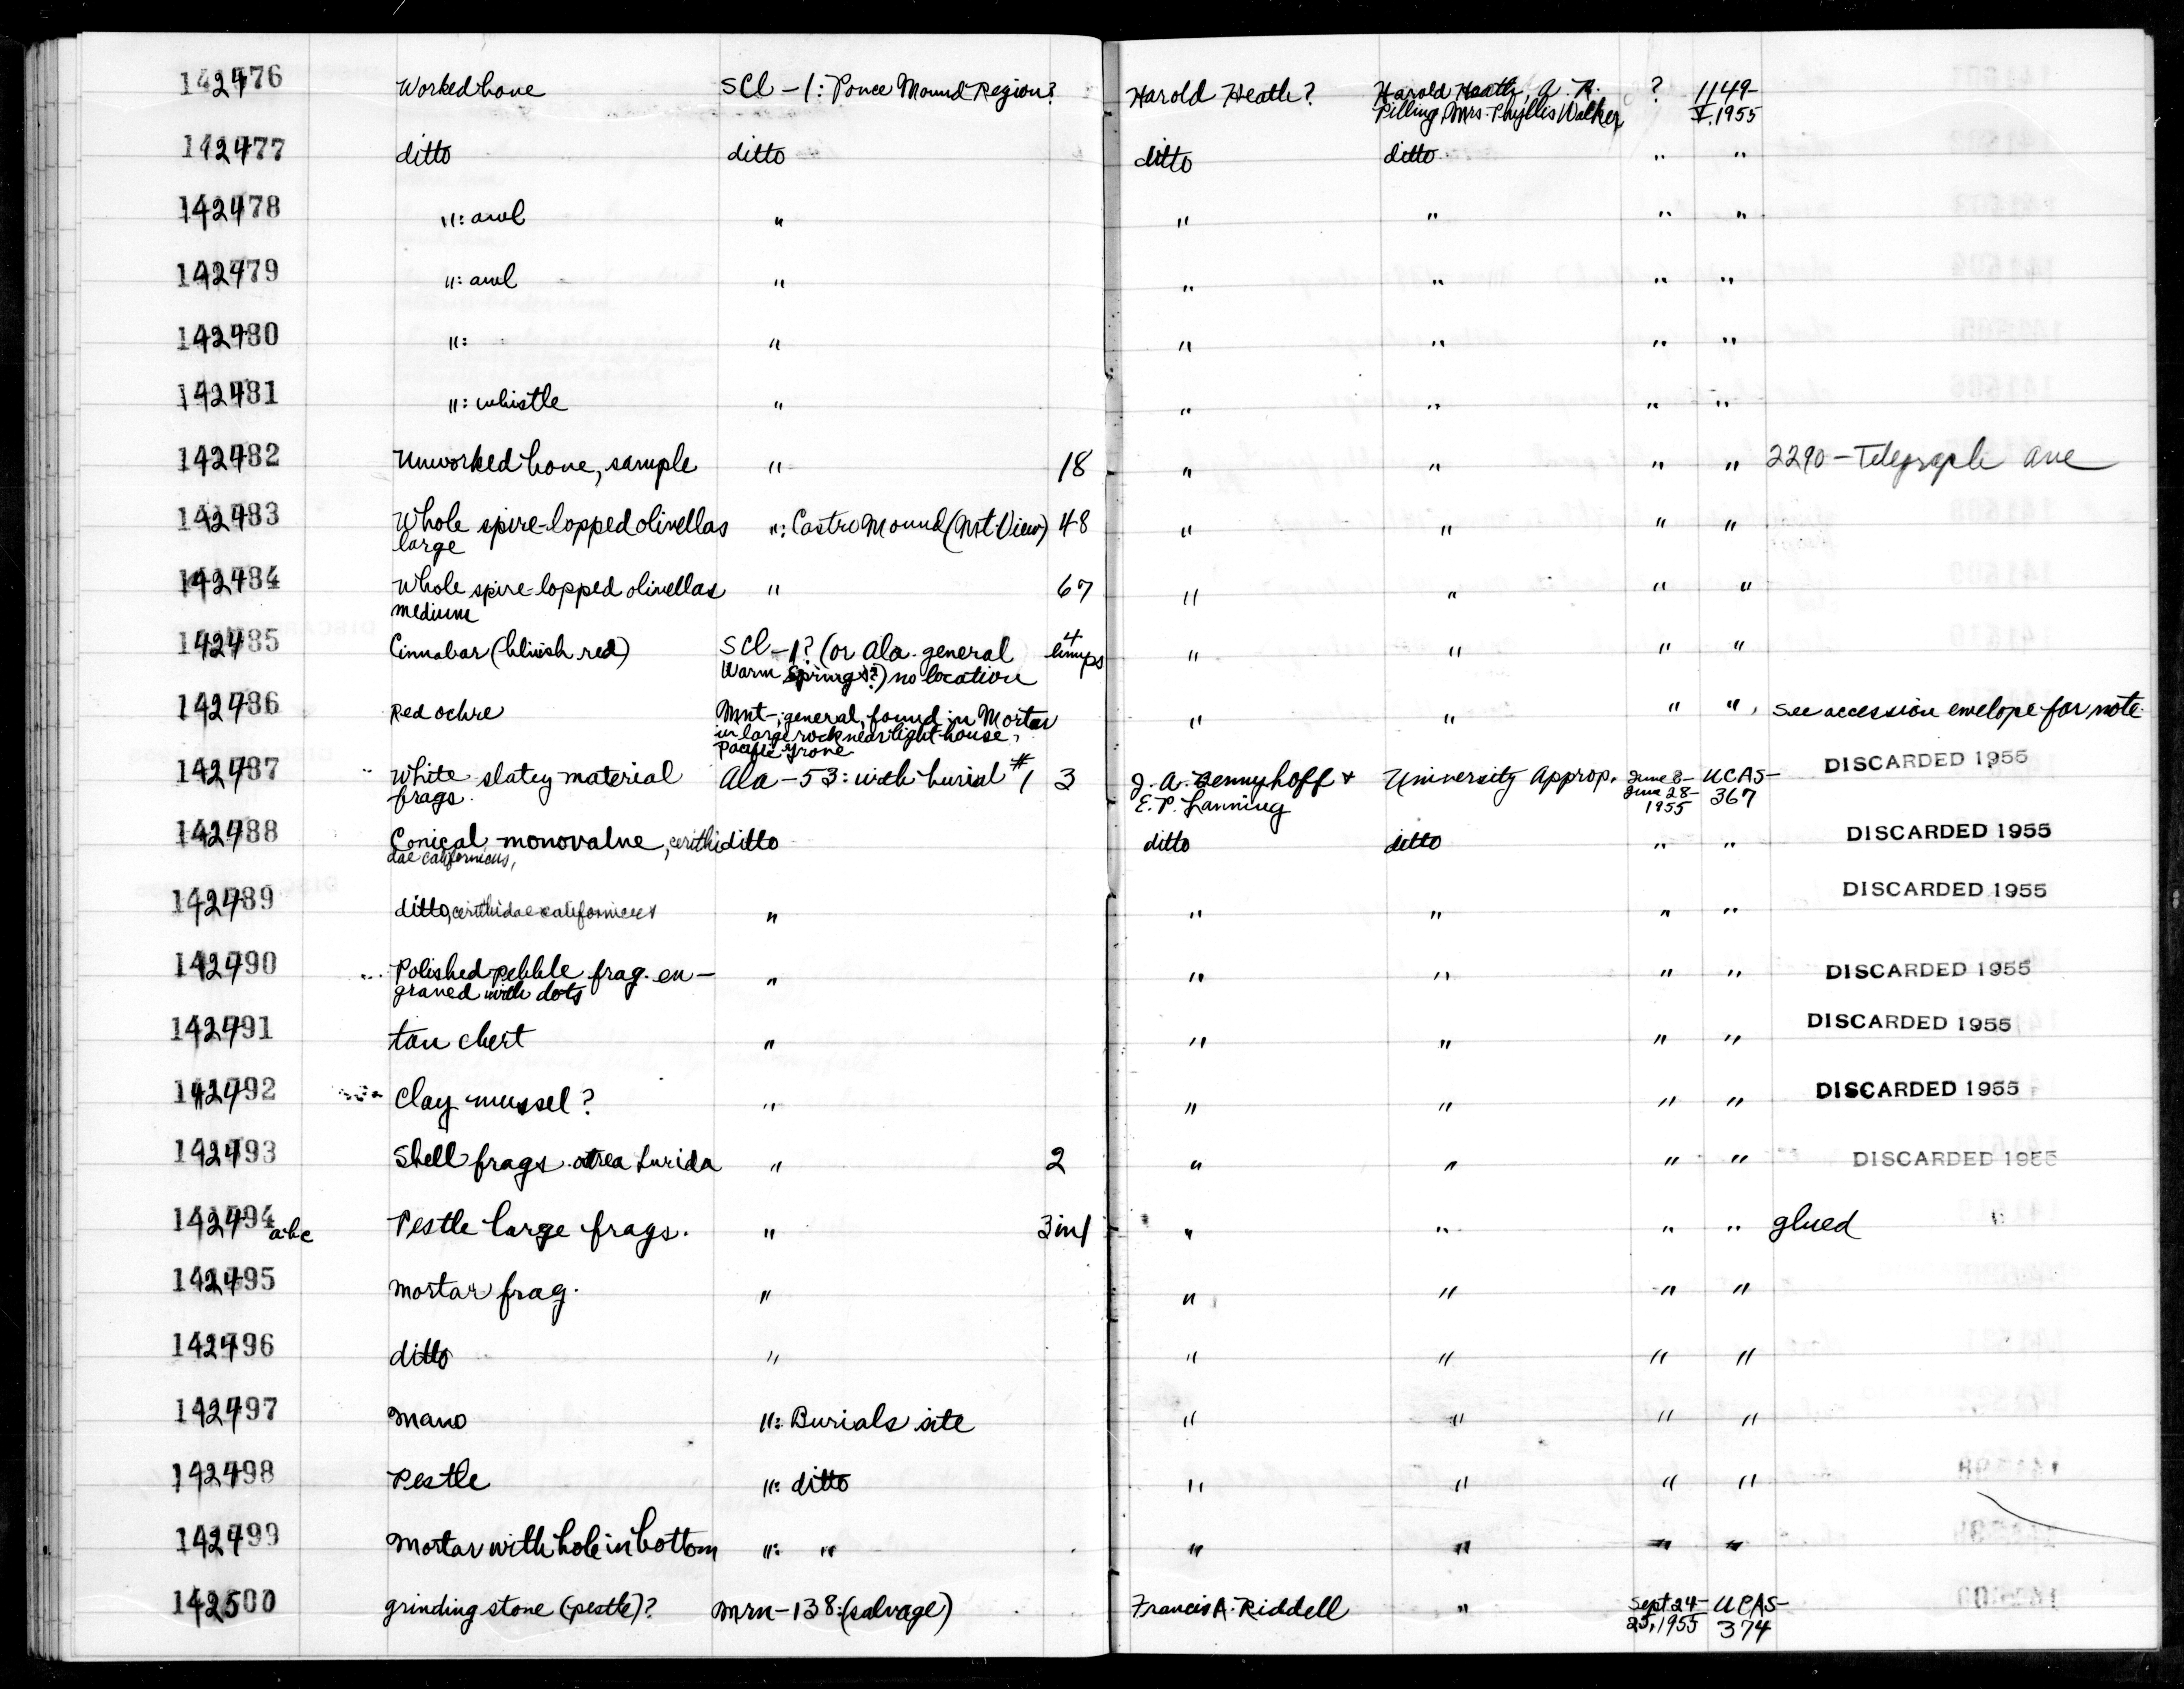 142476 Worked bone SCl-1: Ponce Mound Region? Harold Heath? Harold Heath, A. R. ? 1149-
Pilling, Mrs. Phyllis Walker V.1955
142477 ditto ditto ditto ditto " "
142478 ": awl " " " " "
142479 ": awl " " " " "
142480 ": " " " " "
142481 ": whistle " " " " "
142482 Unworked bone, sample " 18 " " " " 2290-Telegraph ave
142483 Whole spire-lopped olivellas ": Castro Mound (Mt. View) 48 " " " "
large
142484 Whole spire-lopped olivellas " 67 " " " "
medium
142485 Cinnabar (bluish red) SCl-1? (or Ala. general 4 " " " "
Warm Springs?) no location lumps
142486 Red ochre Mnt-; general, found in Mortar " " " " see accession envelope for note
in large rock near light house,
Pacific Grove
142487 White slatey material Ala-53: with burial #1 3 J. A. Bennyhoff + University Approp. June 8- UCAS- DISCARDED 1955
frags. E. P. Lanning June 28- 367
1955
142488 Conical monovalve, cerithi ditto ditto ditto " " DISCARDED 1955
dae californicus,
142489 ditto, cerithidae californicus " " " " " DISCARDED 1955
142490 Polished pebble frag. en- " " " " " DISCARDED 1955
graved with dots
142491 tan chert " " " " " DISCARDED 1955
142492 Clay mussel? " " " " " DISCARDED 1955
142493 Shell frags. ostrea lurida " 2 " " " " DISCARDED 1955
142494 abc Pestle large frags. " 3 in 1 " " " " glued
142495 Mortar frag. " " " " "
142496 ditto " " " " "
142497 Mano ": Burials site " " " "
142498 Pestle ": ditto " " " "
142499 Mortar with hole in bottom ": " " " " "
142500 grinding stone (pestle)? Mrn-138: (salvage) Francis A. Riddell " Sept 24- UCAS-
25, 1955 374